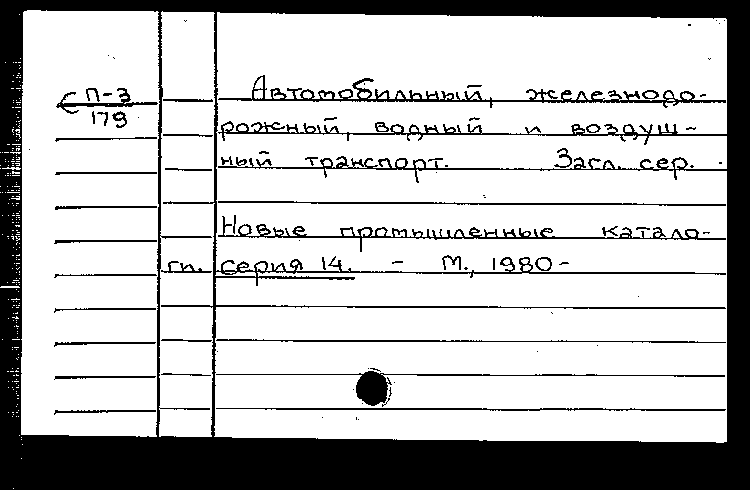 С П-3
179
Автомобильный, железнодо-
рожный, водный и воздуш-
ный транспорт. Загл. сер.
Новые промышленные катало-
ги. серия 14. - М., 1980-